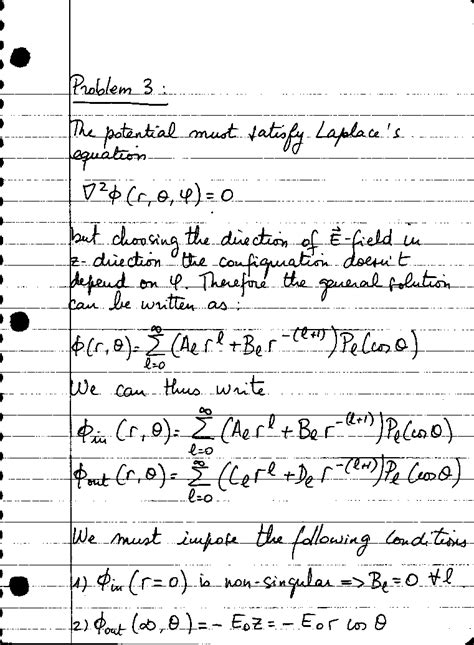 Problem 3 :
The potential must satisfy Laplace's
equation
∇²ϕ (r, θ, φ) = 0
but choosing the direction of E⃗-field in
z-direction the configuration doesn't
depend on φ. Therefore the general solution
can be written as :
ϕ(r, θ) = ∑_{l=0}^{∞} (A_l r^l + B_l r^{-(l+1)}) P_l (cos θ)
We can thus write
ϕ_in (r, θ) = ∑_{l=0}^{∞} (A_l r^l + B_l r^{-(l+1)}) P_l (cos θ)
ϕ_out (r, θ) = ∑_{l=0}^{∞} (C_l r^l + D_l r^{-(l+1)}) P_l (cos θ)
We must impose the following conditions
1) ϕ_in (r=0) is non-singular => B_l = 0 ∀ l
2) ϕ_out (∞, θ) = - E₀z = - E₀ r cos θ